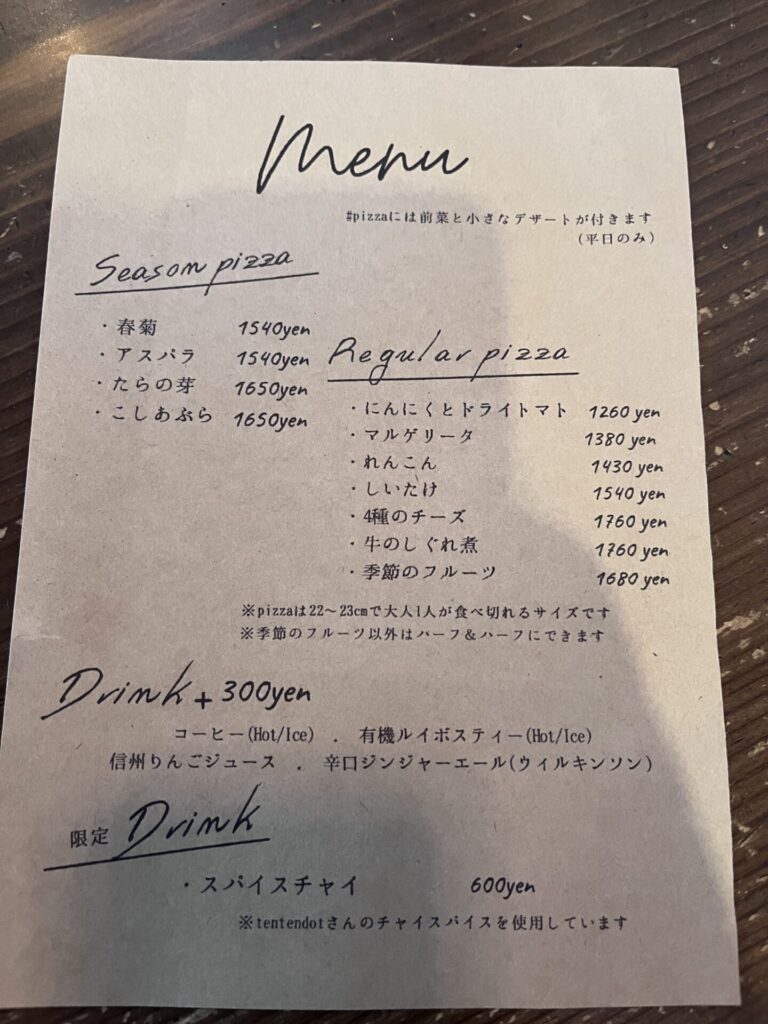 Menu
#pizzaには前菜と小さなデザートが付きます
(平日のみ)
Season pizza
・春菊 1540yen
・アスパラ 1540yen
・たらの芽 1650yen
・こしあぶら 1650yen
Regular pizza
・にんにくとドライトマト 1260 yen
・マルゲリータ 1380 yen
・れんこん 1430 yen
・しいたけ 1540 yen
・4種のチーズ 1760 yen
・牛のしぐれ煮 1760 yen
・季節のフルーツ 1680 yen
※pizzaは22～23cmで大人1人が食べ切れるサイズです
※季節のフルーツ以外はハーフ&ハーフにできます
Drink + 300yen
コーヒー(Hot/Ice) . 有機ルイボスティー(Hot/Ice)
信州りんごジュース . 辛口ジンジャーエール(ウィルキンソン)
限定 Drink
・スパイスチャイ 600yen
※tentendotさんのチャイスパイスを使用しています